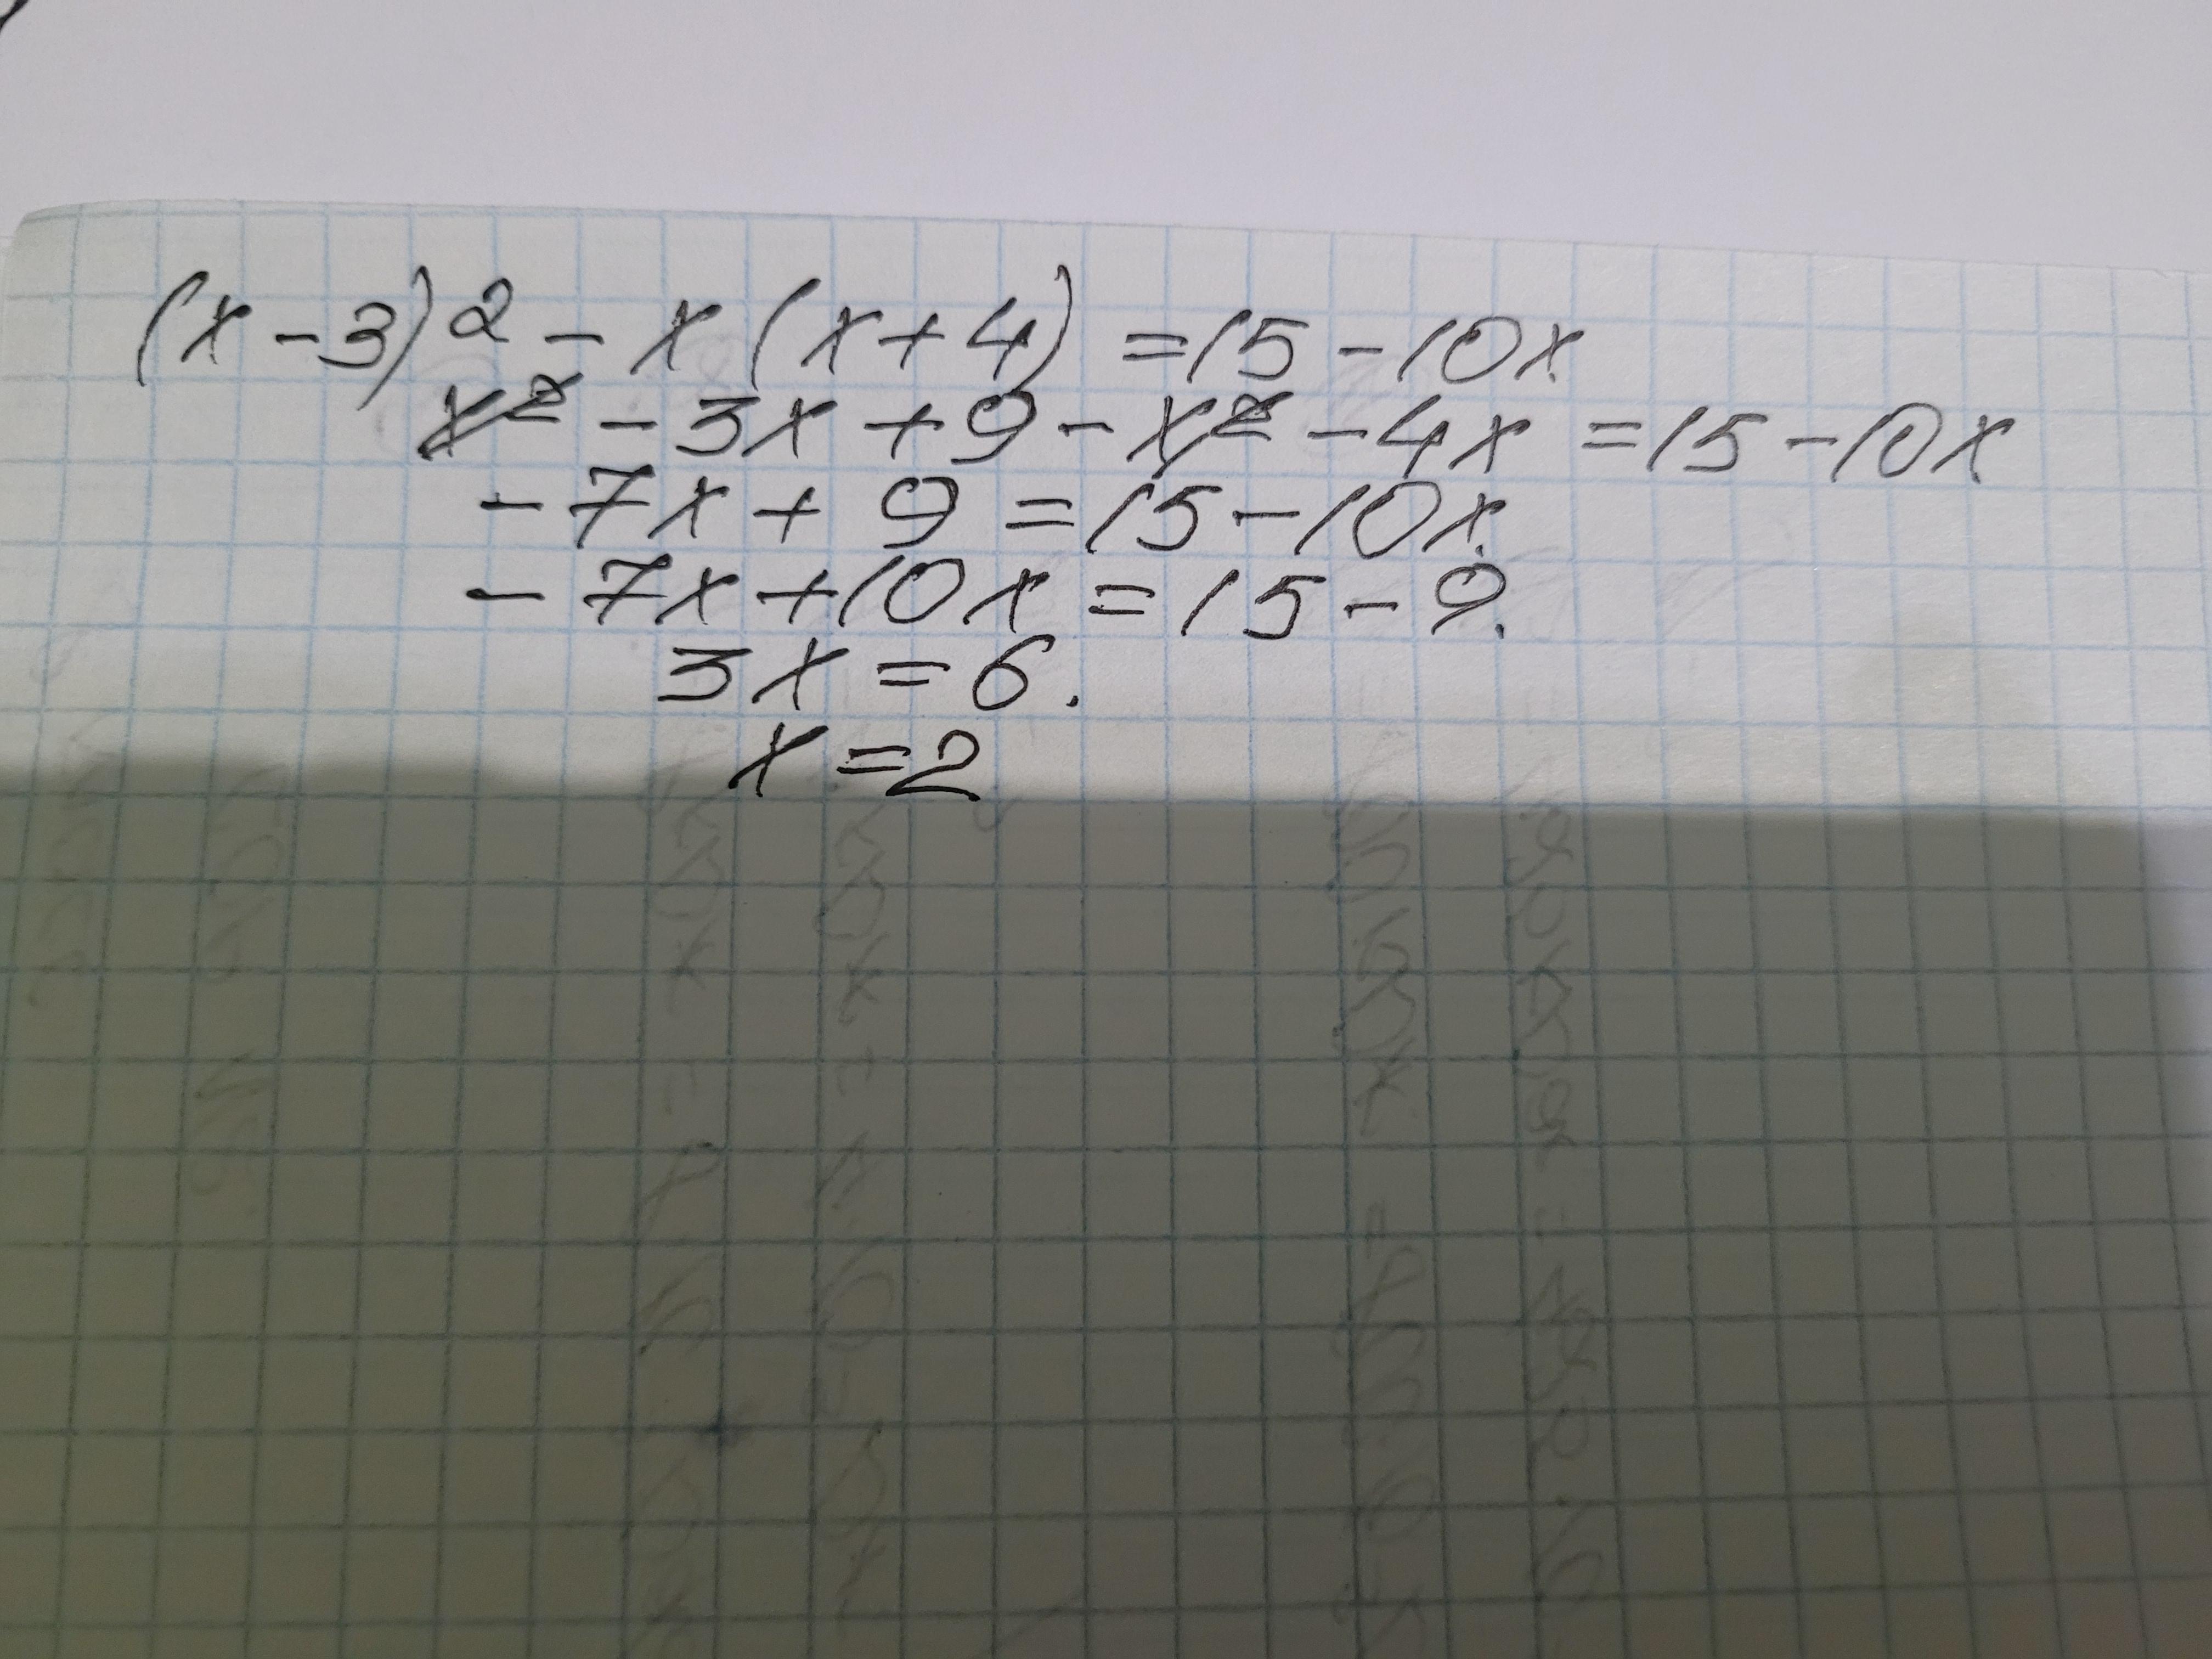 (x-3)² - x(x+4) = 15 - 10x
x² - 3x + 9 - x² - 4x = 15 - 10x
- 7x + 9 = 15 - 10x.
- 7x + 10x = 15 - 9.
3x = 6.
x = 2